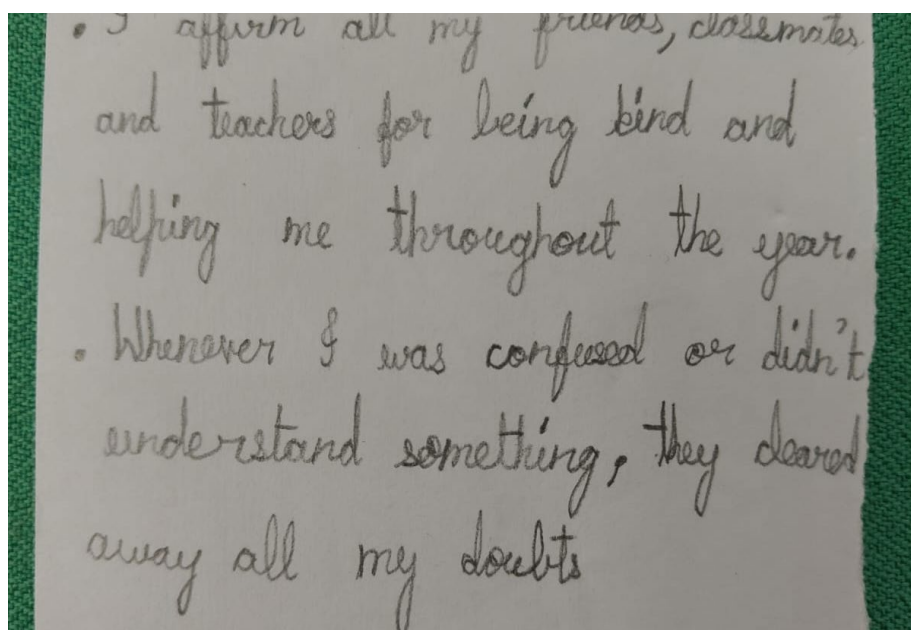 . I affirm all my friends, classmates
and teachers for being kind and
helping me throughout the year.
. Whenever I was confused or didn't
understand something, they cleared
away all my doubts